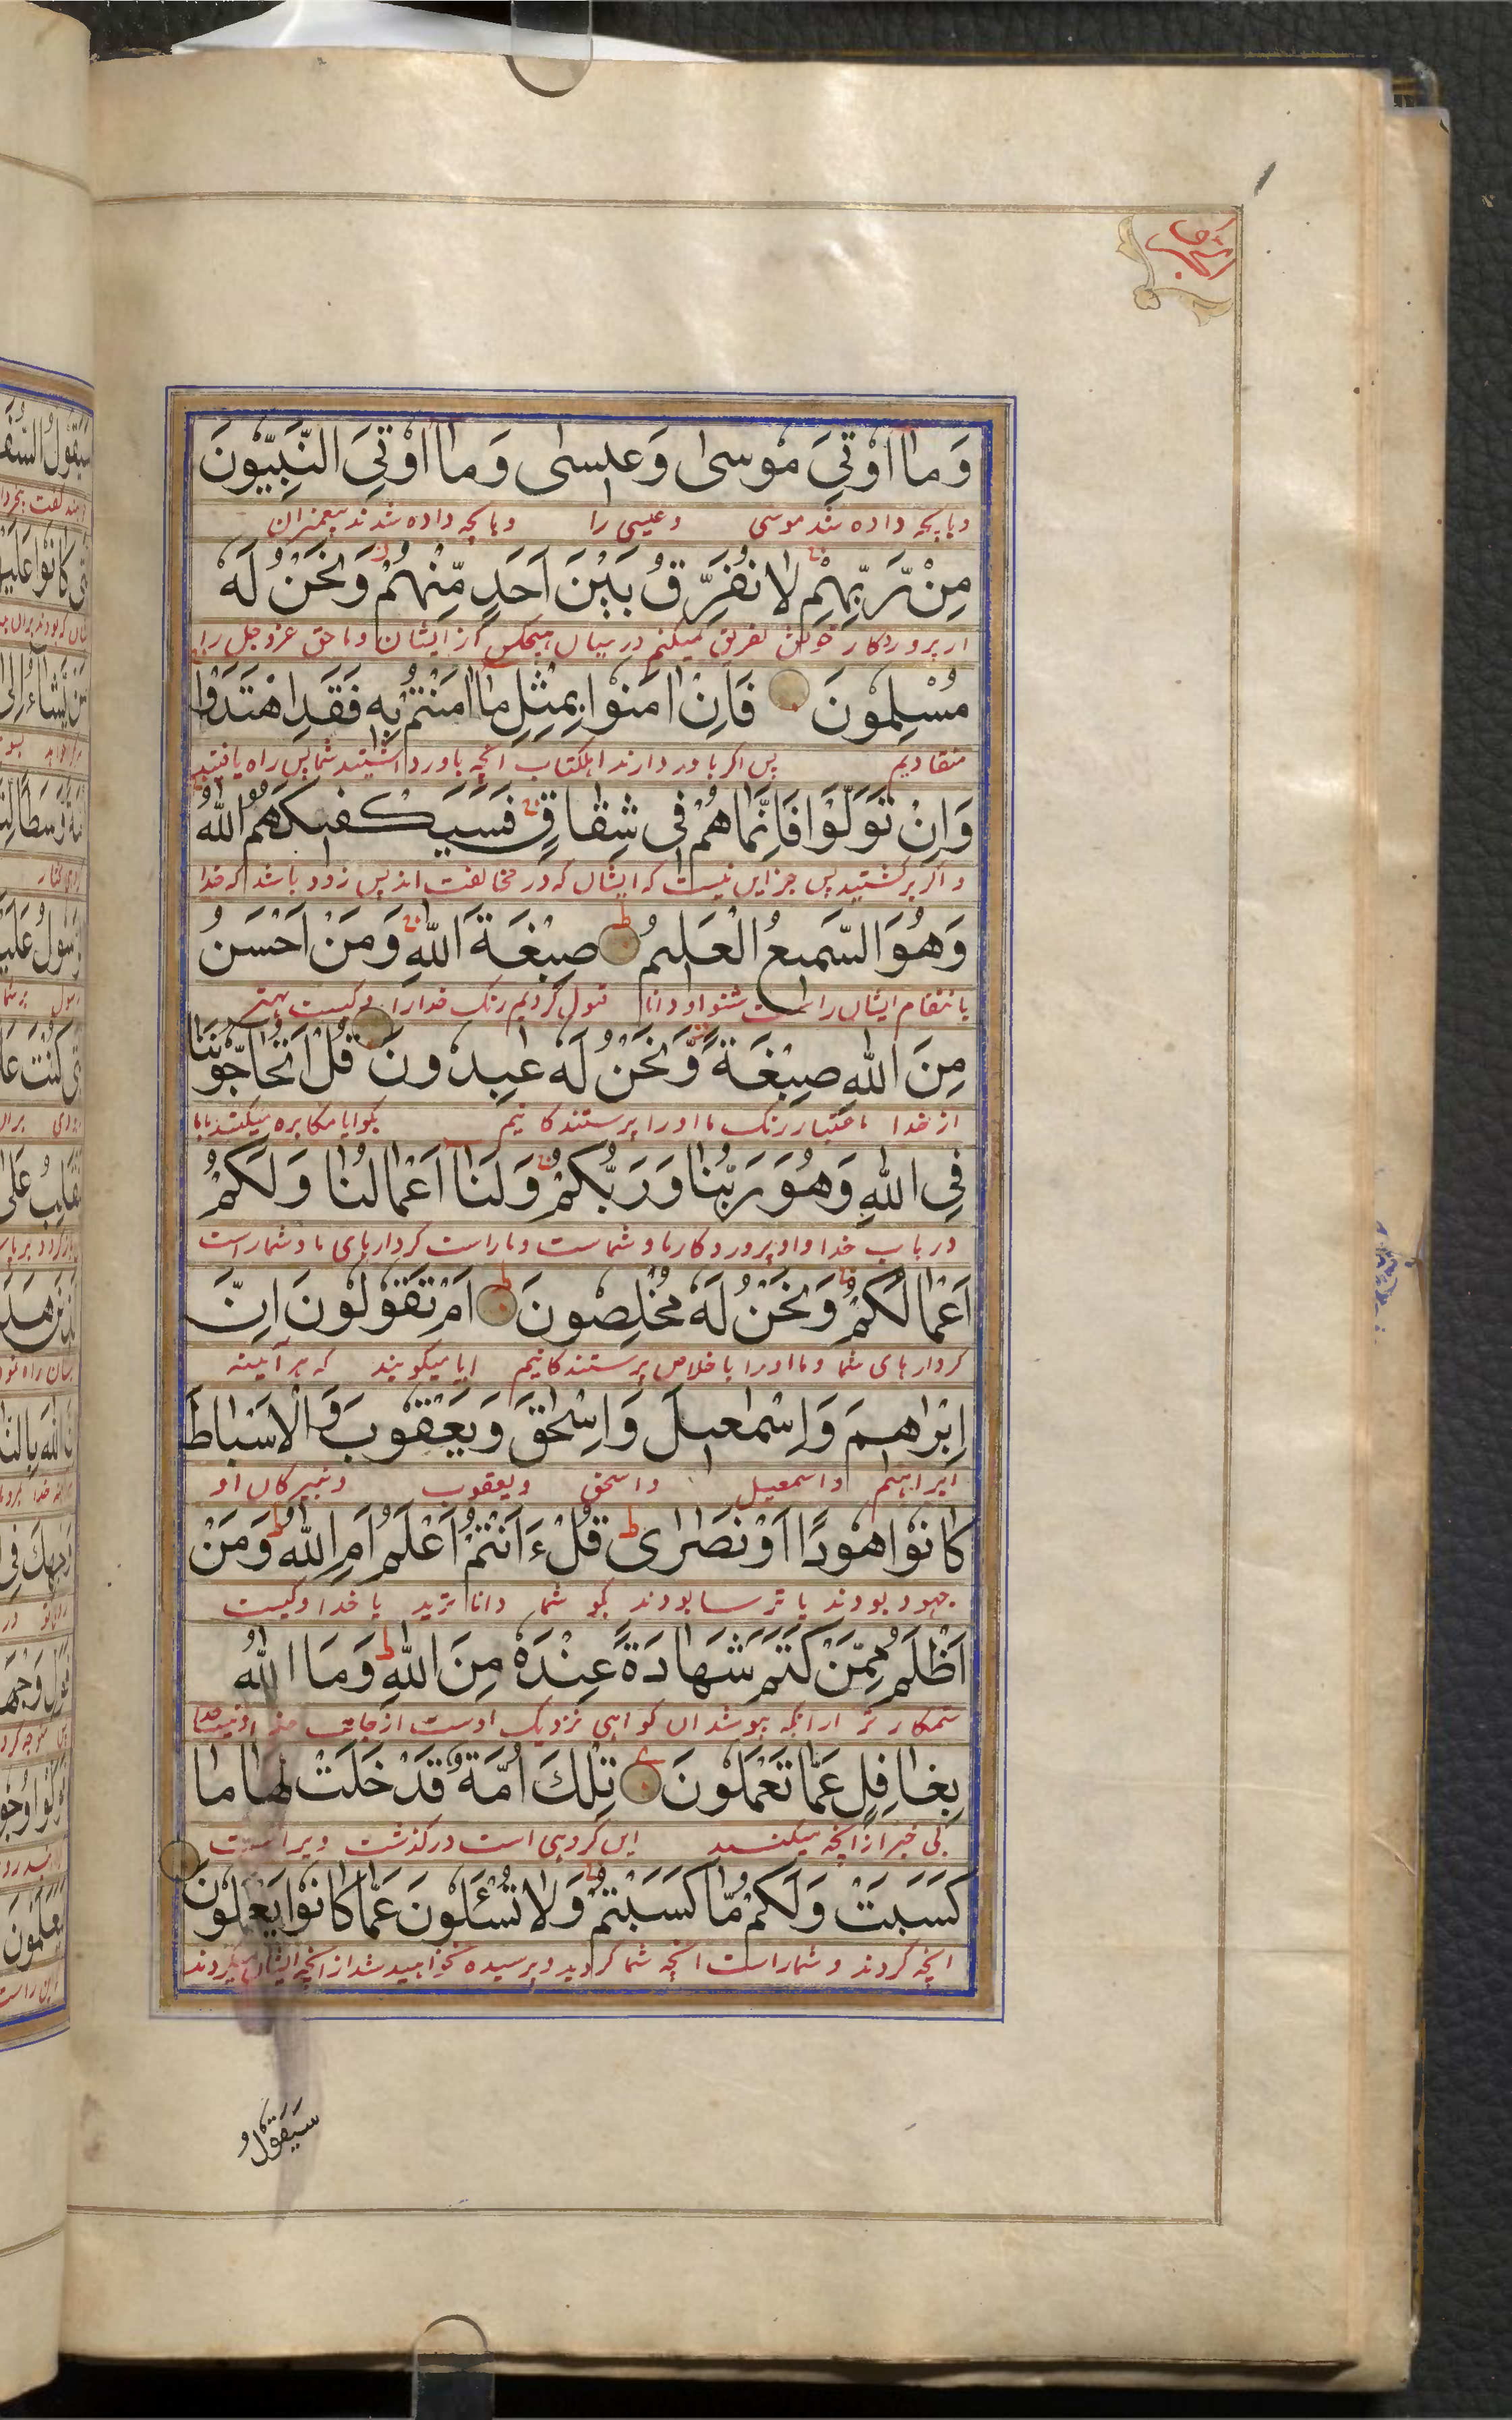 وَمَا اُوْتِیَ مُوْسٰی وَعِیسٰی وَمَا اُوْتِیَ النَّبِیُّوْنَ
وبانچه داده شد موسی و عیسی را وبانچه داده شدند پیغمبران
مِنْ رَّبِّهِمْ لَا نُفَرِّقُ بَیْنَ اَحَدٍ مِّنْهُمْ وَنَحْنُ لَهٗ
از پروردکار خویش تفریق نمیکنم درمیان هیچکس از ایشان وما حق عزوجل را
مُسْلِمُوْنَ فَاِنْ اٰمَنُوْا بِمِثْلِ مَا اٰمَنْتُمْ بِهٖ فَقَدِ اهْتَدَوْا
منقادیم پس اکر باور دارند اهلکتاب انچه باور داشتید شما پس راه یافتند
وَاِنْ تَوَلَّوْا فَاِنَّمَا هُمْ فِی شِقَاقٍ فَسَیَکْفِیکَهُمُ اللّٰهُ
واکر برکشتید پس جز این نیست که ایشان که در مخالفت اند پس زود باشد که خدا
وَهُوَ السَّمِیعُ الْعَلِیمُ صِبْغَةَ اللّٰهِ وَمَنْ اَحْسَنُ
بانتقام ایشان راست شنوا و دانا قبول کردیم رنک خدا را وکیست بهتر
مِنَ اللّٰهِ صِبْغَةً وَّنَحْنُ لَهٗ عٰبِدُوْنَ قُلْ اَتُحَاجُّوْنَنَا
از خدا باعتبار رنک ما او را پرستندکانیم بکو ایا مکابره میکنید باما
فِی اللّٰهِ وَهُوَ رَبُّنَا وَرَبُّکُمْ وَلَنَا اَعْمَالُنَا وَلَکُمْ
درباب خدا واو پروردکار ما وشماست وماراست کردارهای ما وشماراست
اَعْمَالُکُمْ وَنَحْنُ لَهٗ مُخْلِصُوْنَ اَمْ تَقُوْلُوْنَ اِنَّ
کردارهای شما وما او را باخلاص پرستندکانیم ایا میکویند که هر آیینه
اِبْرٰاهٖمَ وَاِسْمٰعِیلَ وَاِسْحٰقَ وَیَعْقُوْبَ وَالْاَسْبَاطَ
ابراهیم واسمعیل واسحق ویعقوب ونبیرکان او
کَانُوْا هُوْدًا اَوْ نَصٰرٰی قُلْ ءَاَنْتُمْ اَعْلَمُ اَمِ اللّٰهُ وَمَنْ
جهود بودند یا ترسا بودند بکو شما داناترید یا خدا وکیست
اَظْلَمُ مِمَّنْ کَتَمَ شَهَادَةً عِنْدَهٗ مِنَ اللّٰهِ وَمَا اللّٰهُ
ستمکارتر ازانکه بپوشد ان کواهی نزدیک اوست از جانب
بِغَافِلٍ عَمَّا تَعْمَلُوْنَ تِلْكَ اُمَّةٌ قَدْ خَلَتْ لَهَا مَا
بی خبر ازانچه میکنید این کروهی است درکذشت ویراست
کَسَبَتْ وَلَکُمْ مَّا کَسَبْتُمْ وَلَا تُسْئَلُوْنَ عَمَّا کَانُوْا یَعْمَلُوْنَ
انچه کردند وشماراست انچه شما کردید وپرسیده نخواهید شد ازانچه ایشان میکردند
سَیَقُوْلُ